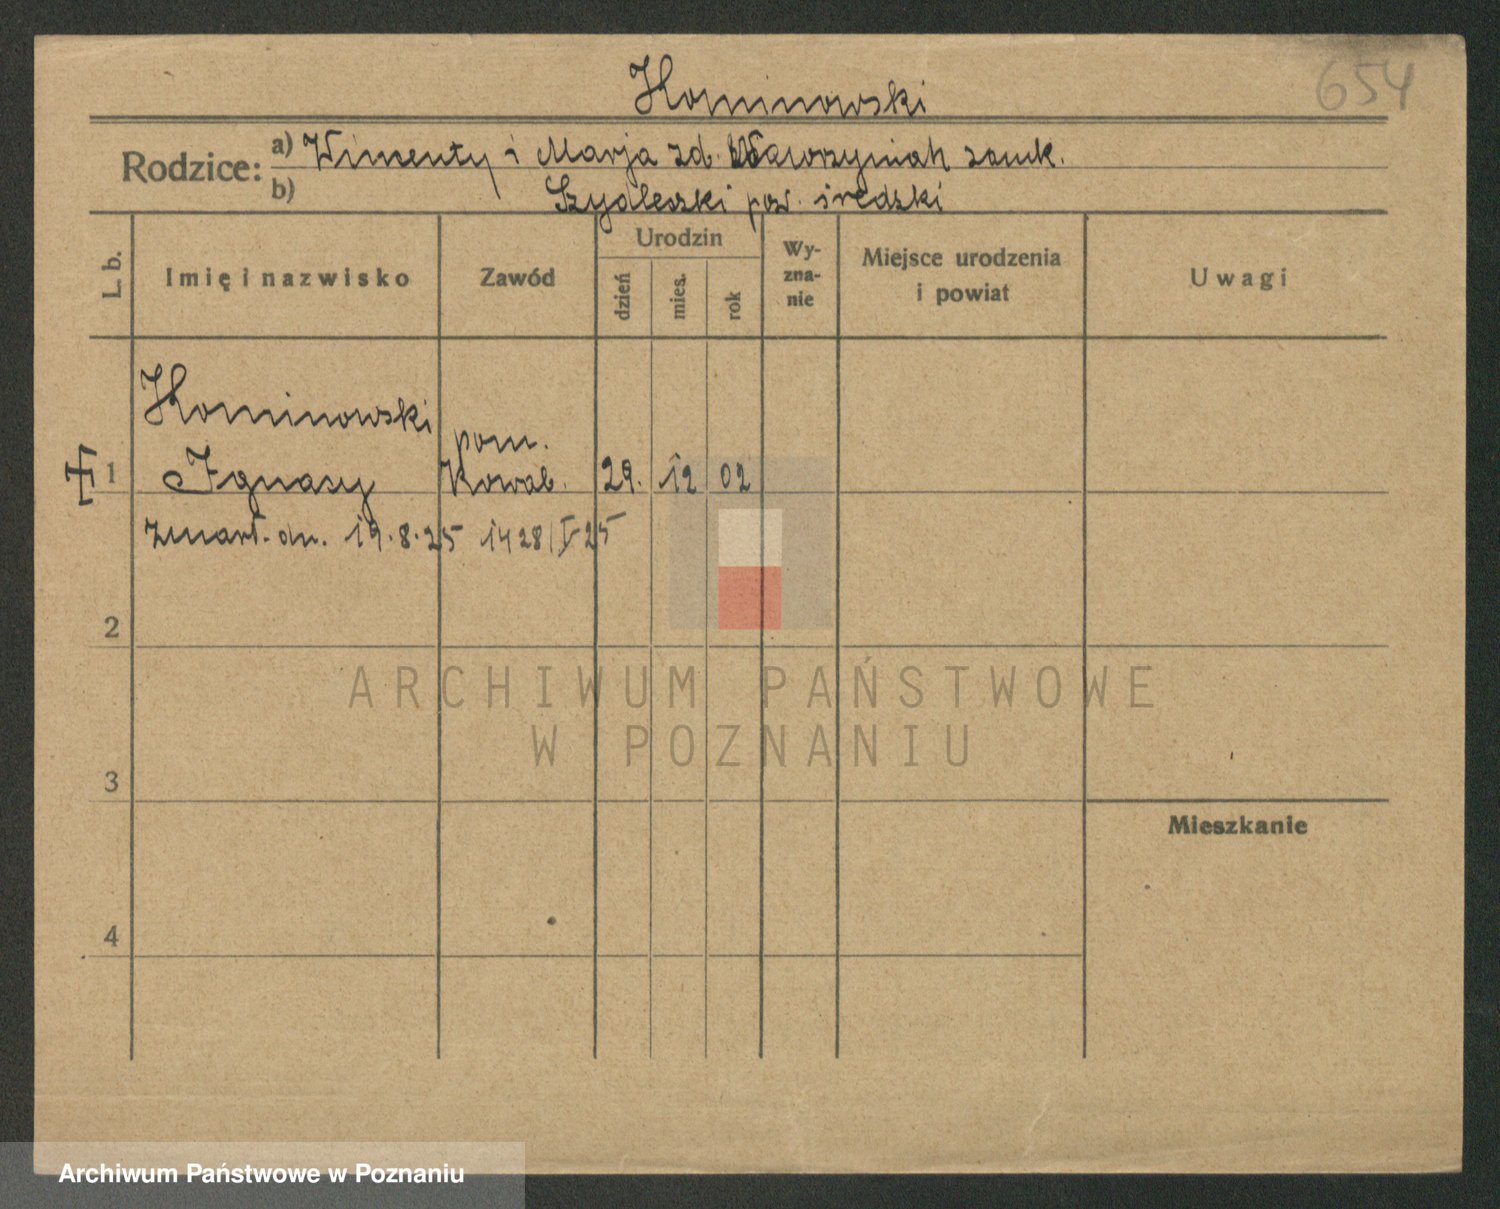 654
Kominowski
Rodzice: a) Wincenty i Marja zd. Wawrzyniak zamk.
b) pow. średzki
L. b.
Imię i nazwisko
Zawód
Urodzin
dzień
mies.
rok
Wy-
zna-
nie
Miejsce urodzenia
i powiat
Uwagi
Kominowski
pom.
1 Ignacy Kowal. 29. 12 02
zmarł. dn. 19.8.25 1428/I 25
2
3
4
Mieszkanie
ARCHIWUM PAŃSTWOWE
W POZNANIU
Archiwum Państwowe w Poznaniu